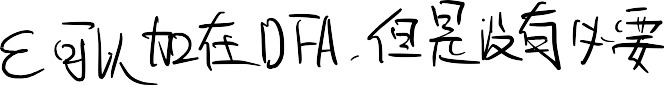 ε可以加在DFA.但是没有必要